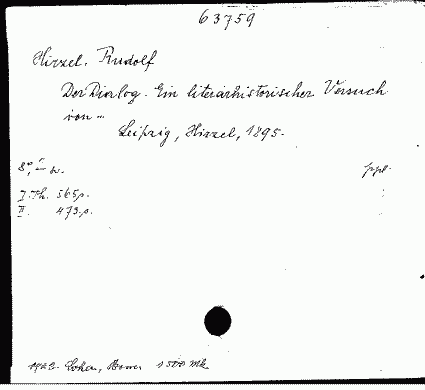 63759
Hirzel, Rudolf
Der Dialog. Ein literarhistorischer Versuch
von -
Leipzig, Hirzel, 1895.
8°, ppl.
I. Th. 565 p.
II. 473 p.
1922. Cohen, Bonn 1500 Mk.